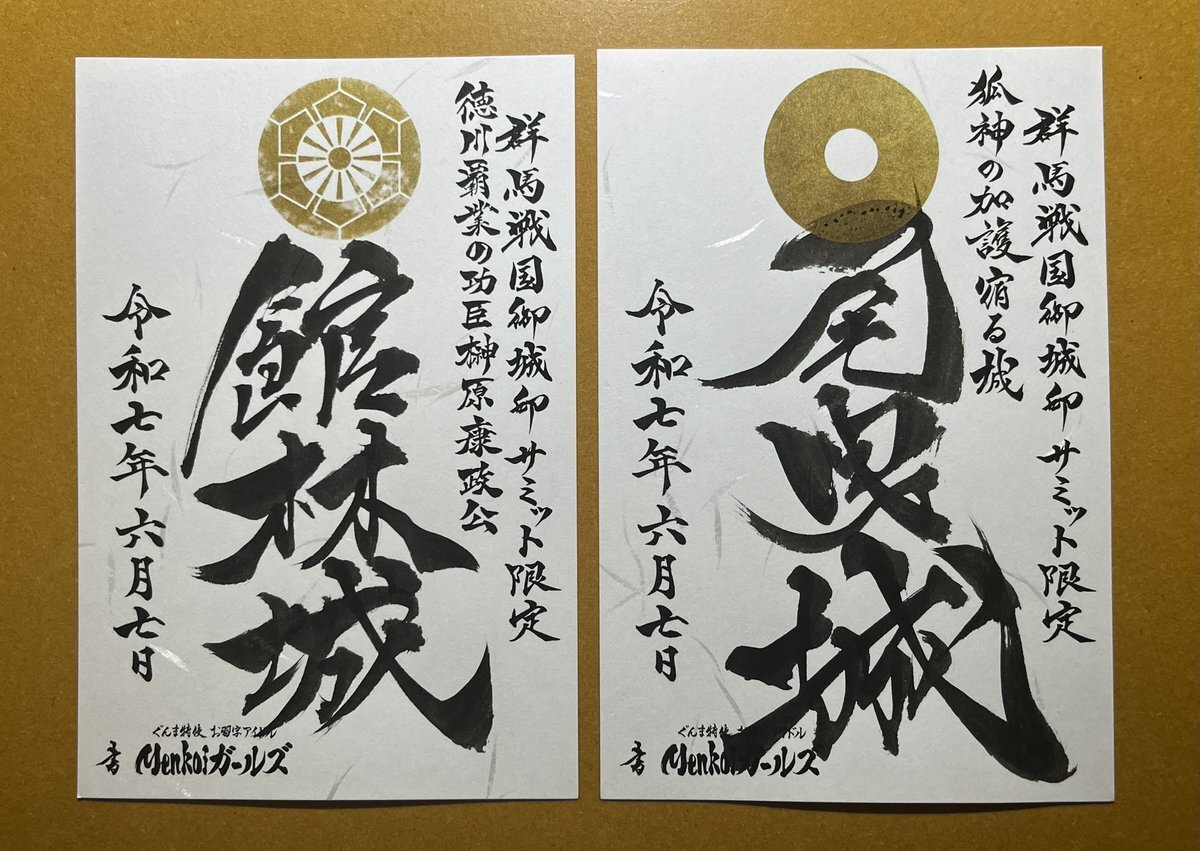 群馬戦国御城印サミット限定
徳川覇業の功臣榊原康政公
館林城
令和七年六月七日
ぐんま特使 お習字アイドル
書 Menkoiガールズ
群馬戦国御城印サミット限定
狐神の加護宿る城
尾曳城
令和七年六月七日
ぐんま特使 お アイドル
書 Menkoiガールズ